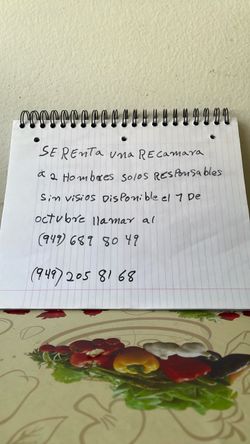 SE RENta una RECamara
a 2 Hombres solos Responsables
sin visios Disponible el 7 De
octubre llamar al
(949) 689 80 49
(949) 205 81 68